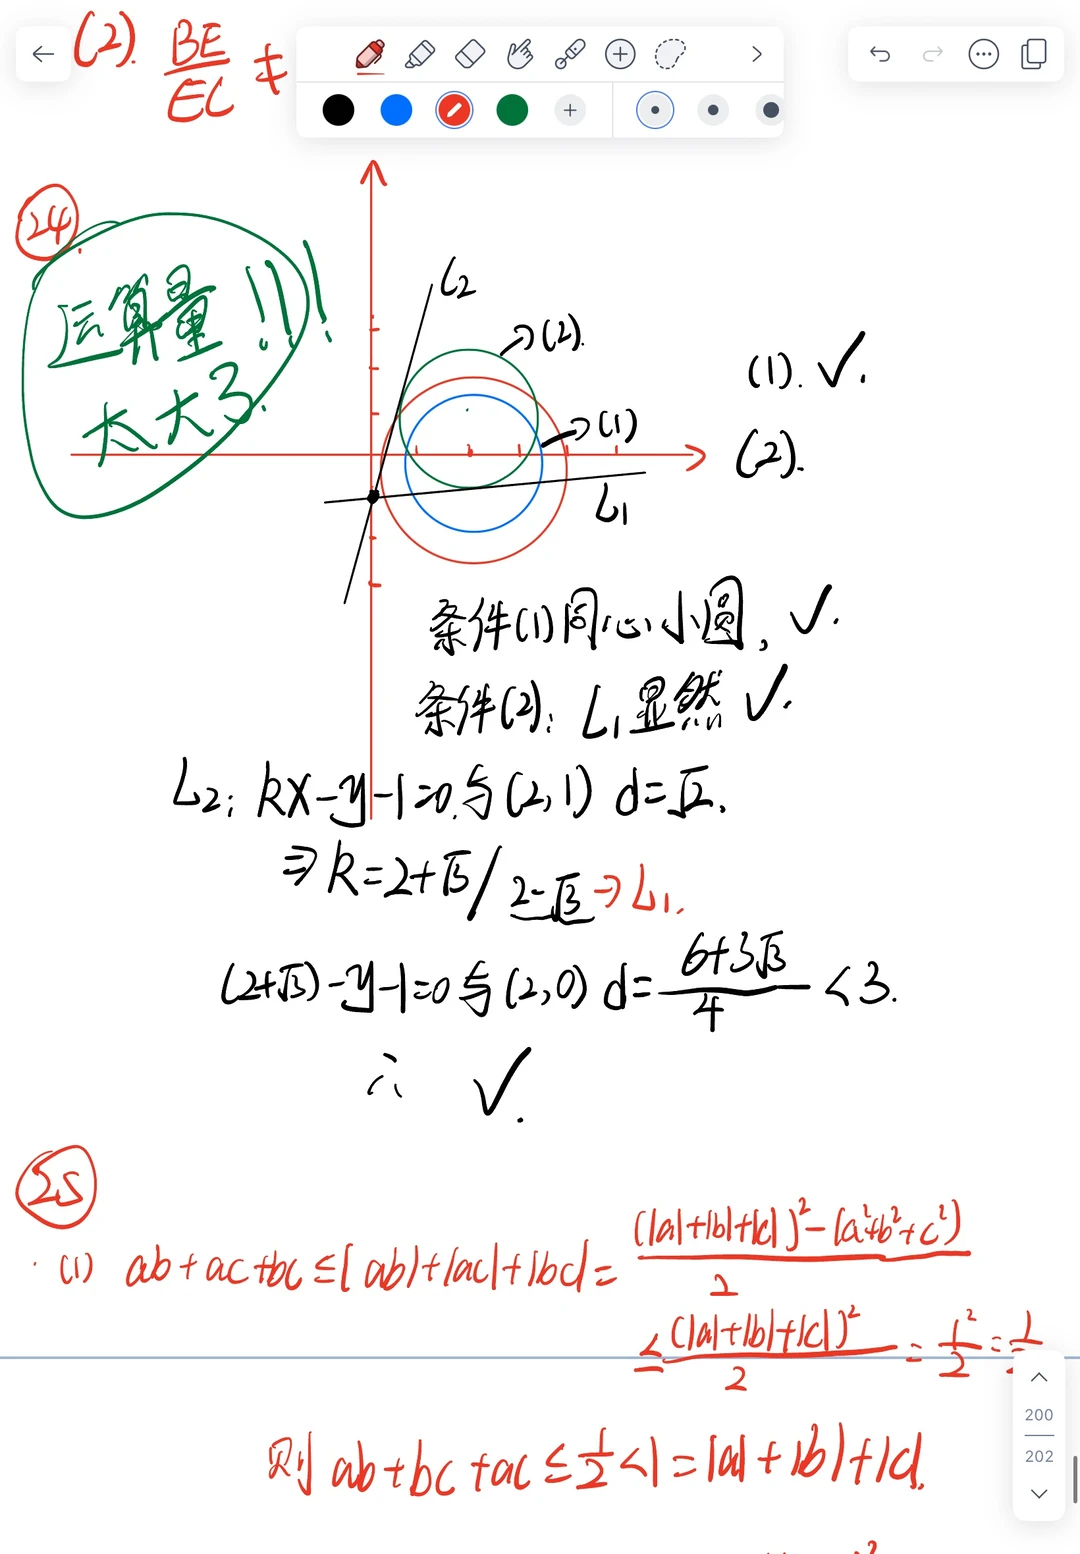 (2). BE/EC ≠
24.
运算量!!!
太大了.
L2
→(2).
(1). ✓.
→(1)
(2).
L1
条件(1)同心小圆, ✓.
条件(2): L1显然 ✓.
L2: kx-y-1=0与(2,1) d=√2.
⇒ k=2+√3/2-√3→L1.
(2+√3)-y-1=0与(2,0) d=(6+3√3)/4 <3.
∴ ✓.
25
(1) ab+ac+bc≤|ab|+|ac|+|bc|=((|a|+|b|+|c|)²-(a²+b²+c²))/2
≤(|a|+|b|+|c|)²/2=1²/2=1/
200
则 ab+bc+ac≤1/2<1=|a|+|b|+|c|.
202